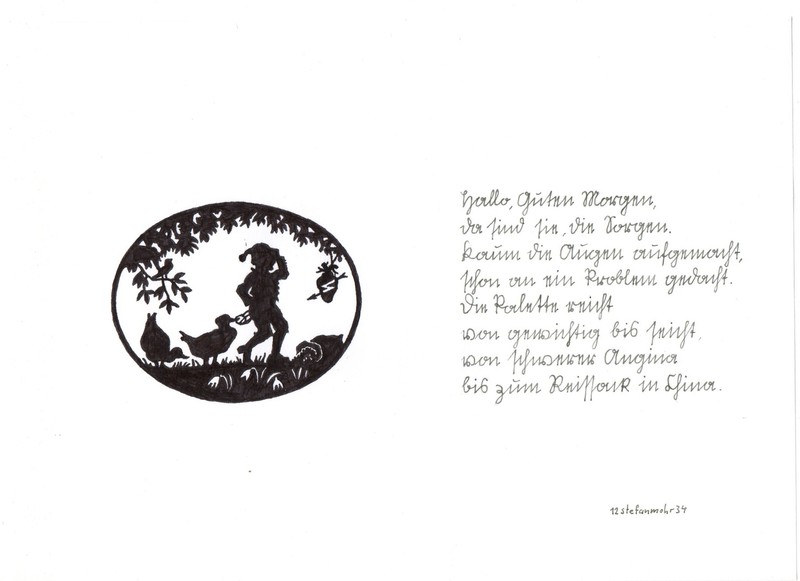 Hallo, Guten Morgen,
da sind sie, die Sorgen.
Kaum die Augen aufgemacht,
schon an ein Problem gedacht.
Die Palette reicht
von gewichtig bis seicht,
von schwerer Angina
bis zum Reissack in China.
12stefanmohr34